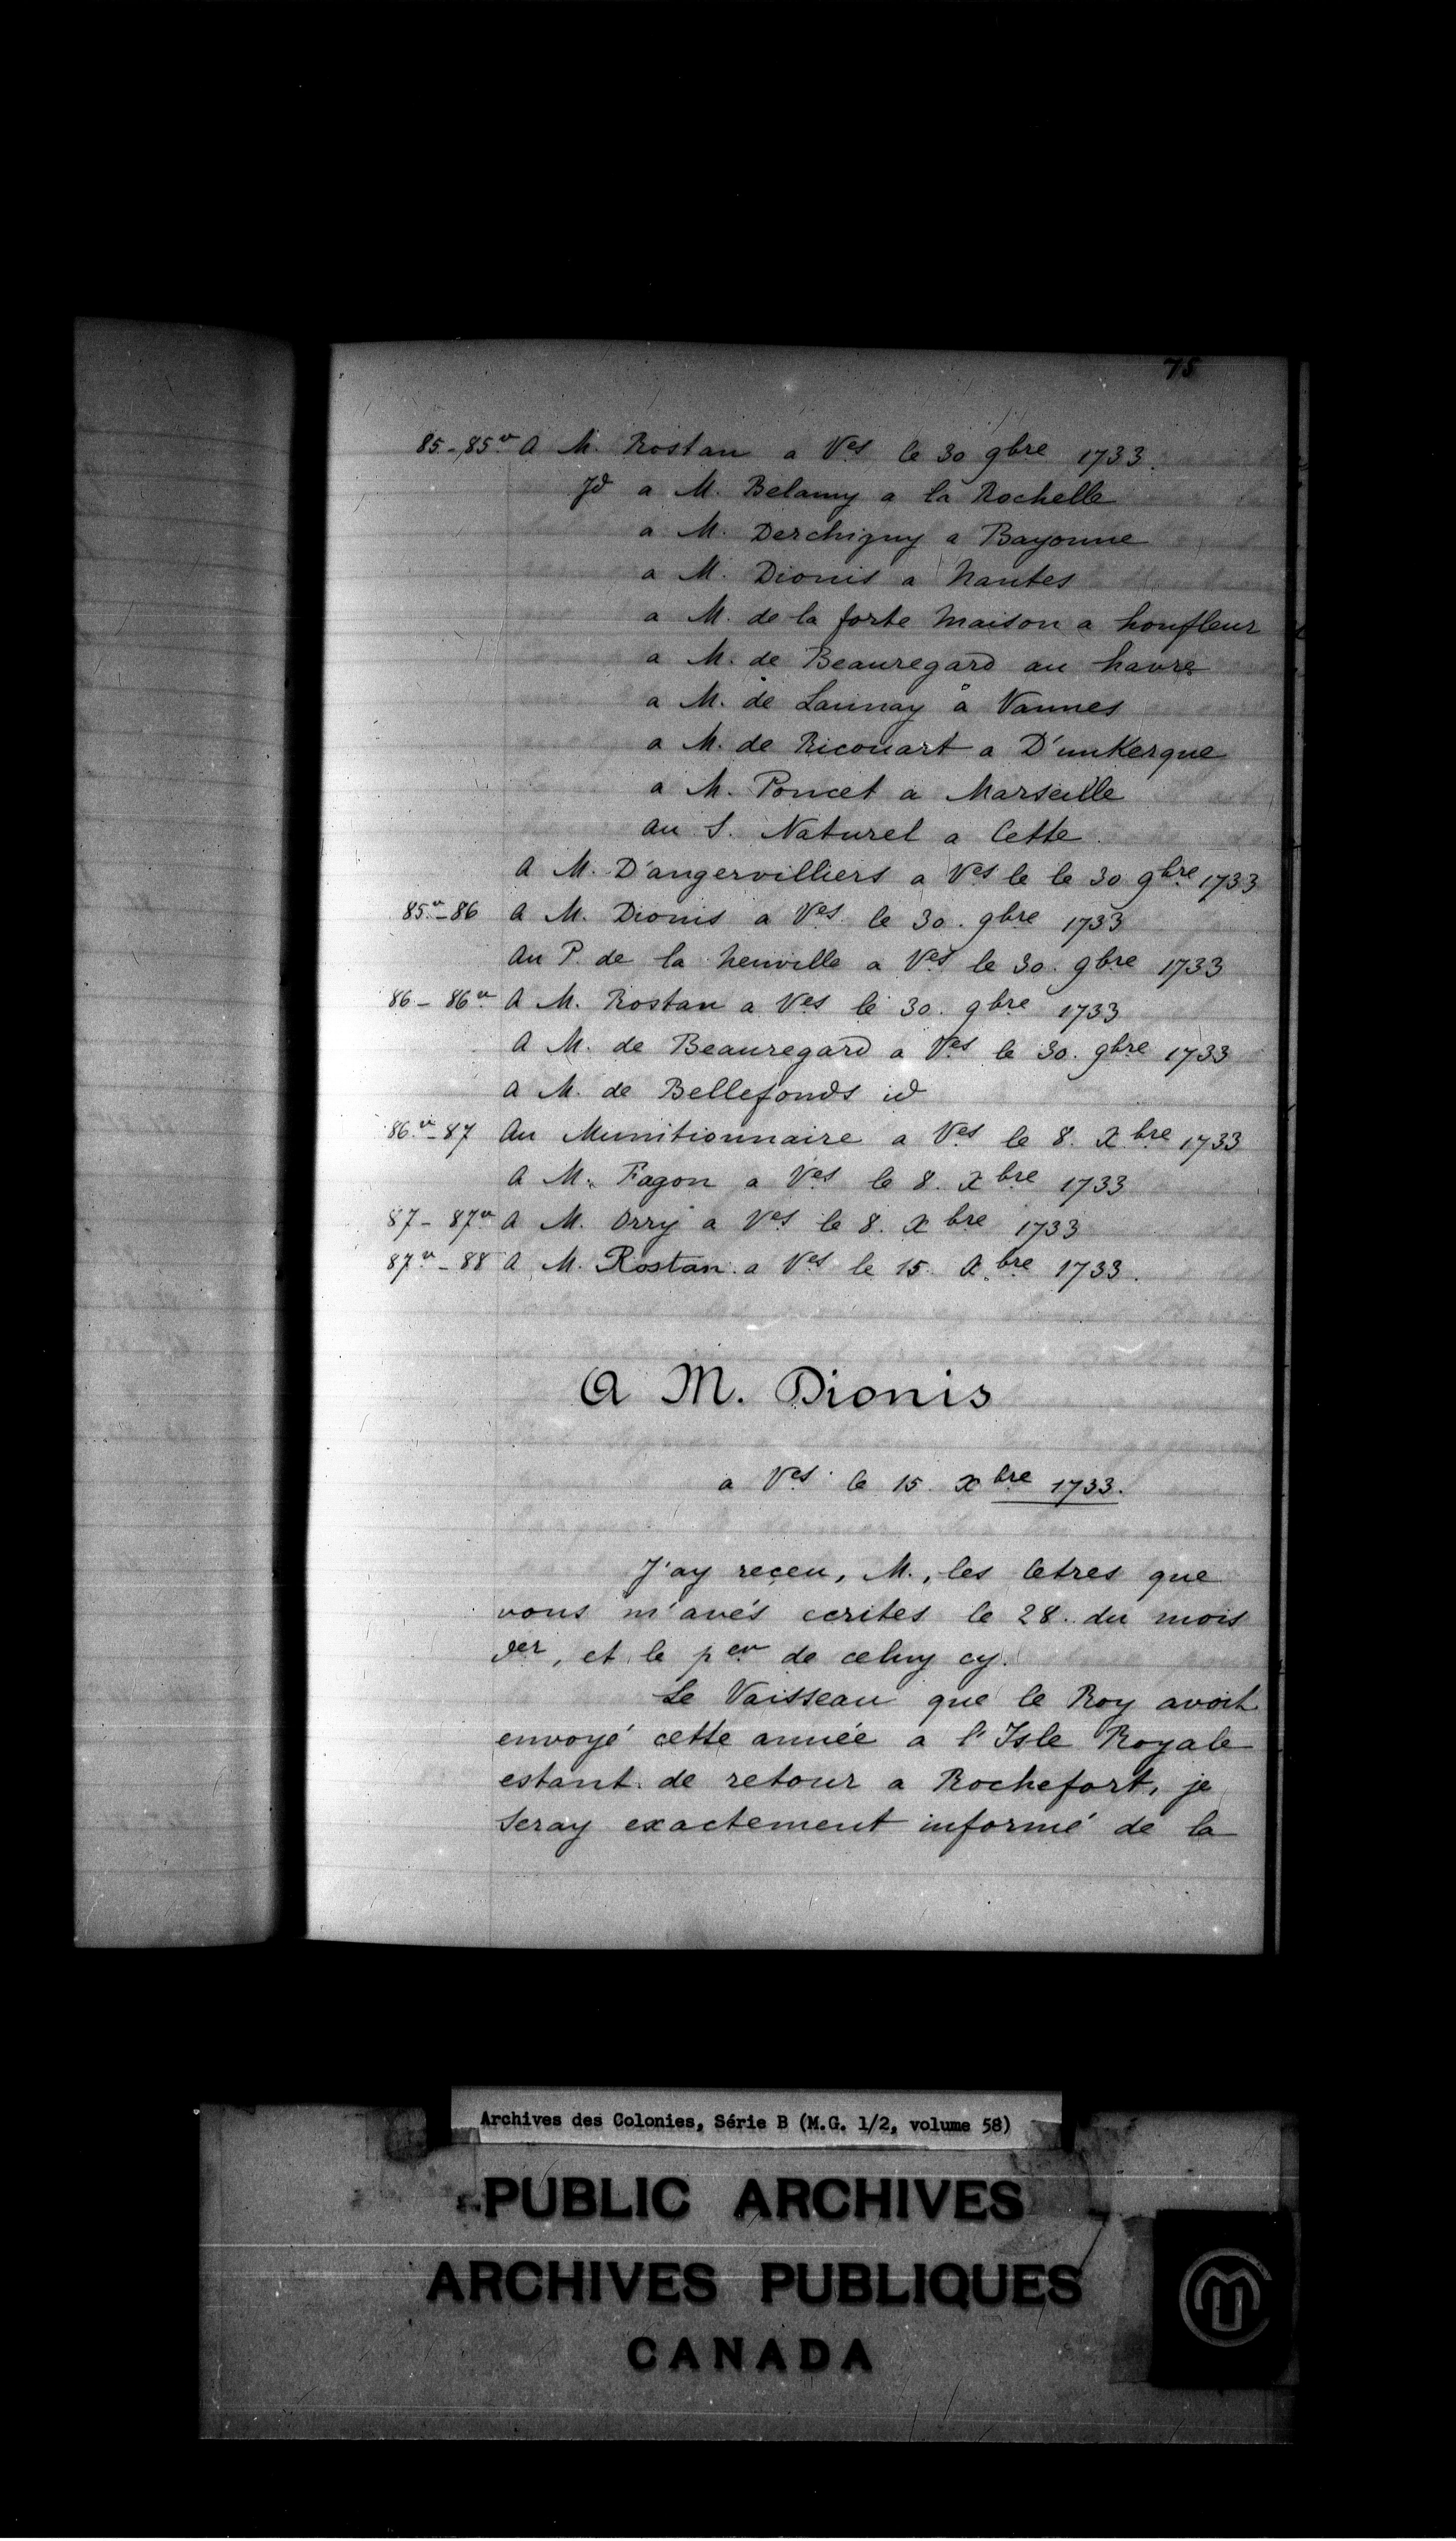 75
85-85v A M. Rostan a Ves le 30 9bre 1733.
Jd a M. Belamy a la Rochelle
a M. Derchigny a Bayonne
a M. Dionis a Nantes
a M. de la forte Maison a honfleur
a M. de Beauregard au havre
a M. de Launay à Vannes
a M. de Ricouart a D'unKerque
a M. Poncet a Marseille
au S. Naturel a Cette.
A M. D'angervilliers a Ves le le 30 9bre 1733
85v-86 A M. Dionis a Ves le 30. 9bre 1733
Au P. de la Neuville a Ves le 30. 9bre 1733
86-86v A M. Rostan a Ves le 30. 9bre 1733
A M. de Beauregard a Ves le 30. 9bre 1733
a M. de Bellefonds id
86v-87 Au Munitionnaire a Ves le 8. Xbre 1733
A M. Fagon a Ves le 8. Xbre 1733
87-87v A M. Orry a Ves le 8. Xbre 1733
87v-88 A M. Rostan a Ves le 15. Xbre 1733.
A M. Dionis
a Ves le 15 Xbre 1733.
J'ay reçeu, M., les letres que
vous m'avés ecrites le 28. du mois
der, et le per de celuy cy.
Le Vaisseau que le Roy avoit
envoyé cette année a l'Isle Royale
estant de retour a Rochefort, je
seray exactement informé de la
Archives des Colonies, Série B (M.G. 1/2, volume 58)
PUBLIC ARCHIVES
ARCHIVES PUBLIQUES
CANADA